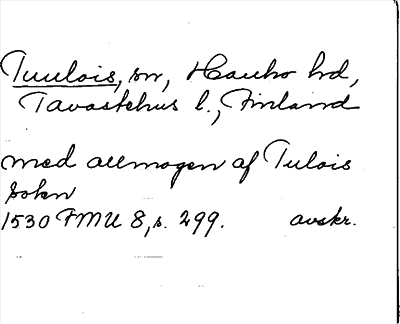 Tuulois, sn, Hauho hd,
Tavastehus l., Finland
med allmogen af Tulois
sokn
1530 FMU 8, s. 299. avskr.